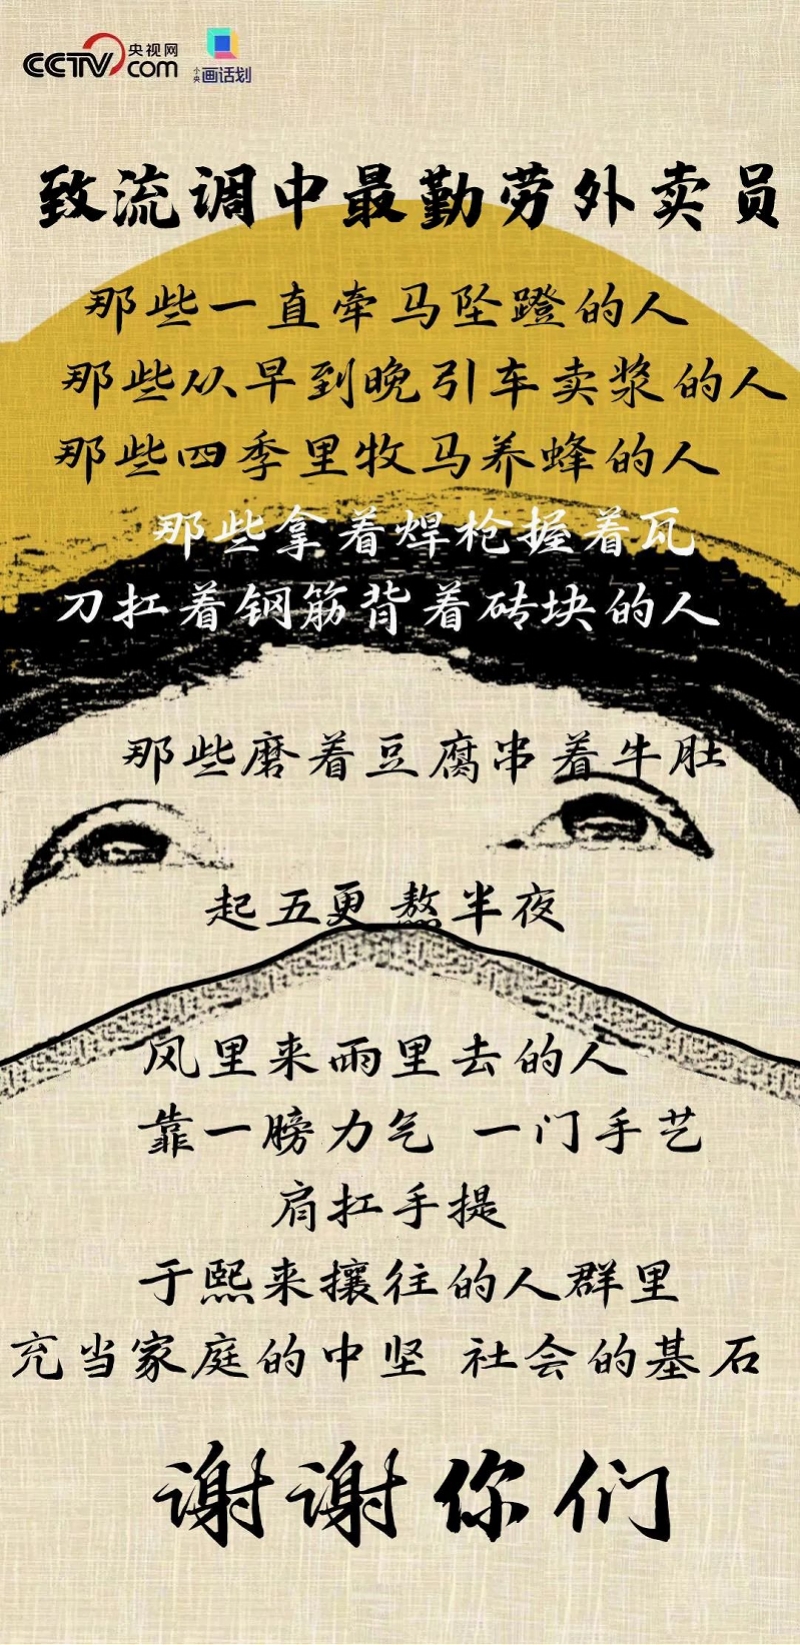 CCTV.com 央视网
小央画话划
致流调中最勤劳外卖员
那些一直牵马坠蹬的人
那些从早到晚引车卖浆的人
那些四季里牧马养蜂的人
那些拿着焊枪握着瓦
刀扛着钢筋背着砖块的人
那些磨着豆腐串着牛肚
起五更 熬半夜
风里来雨里去的人
靠一膀力气 一门手艺
肩扛手提
于熙来攘往的人群里
充当家庭的中坚 社会的基石
谢谢你们